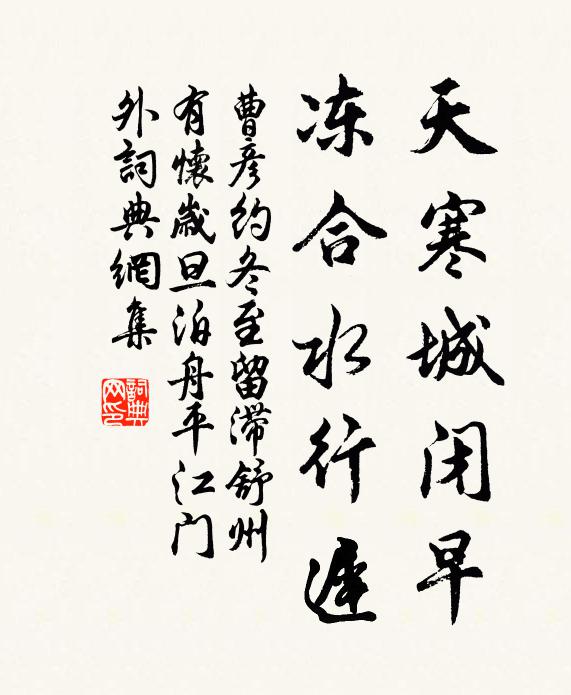 天寒城闭早
冻合水行遲
曹彦约冬至留滯舒州
有懷歳旦泊舟平江门
外詞典網集
詞典网印